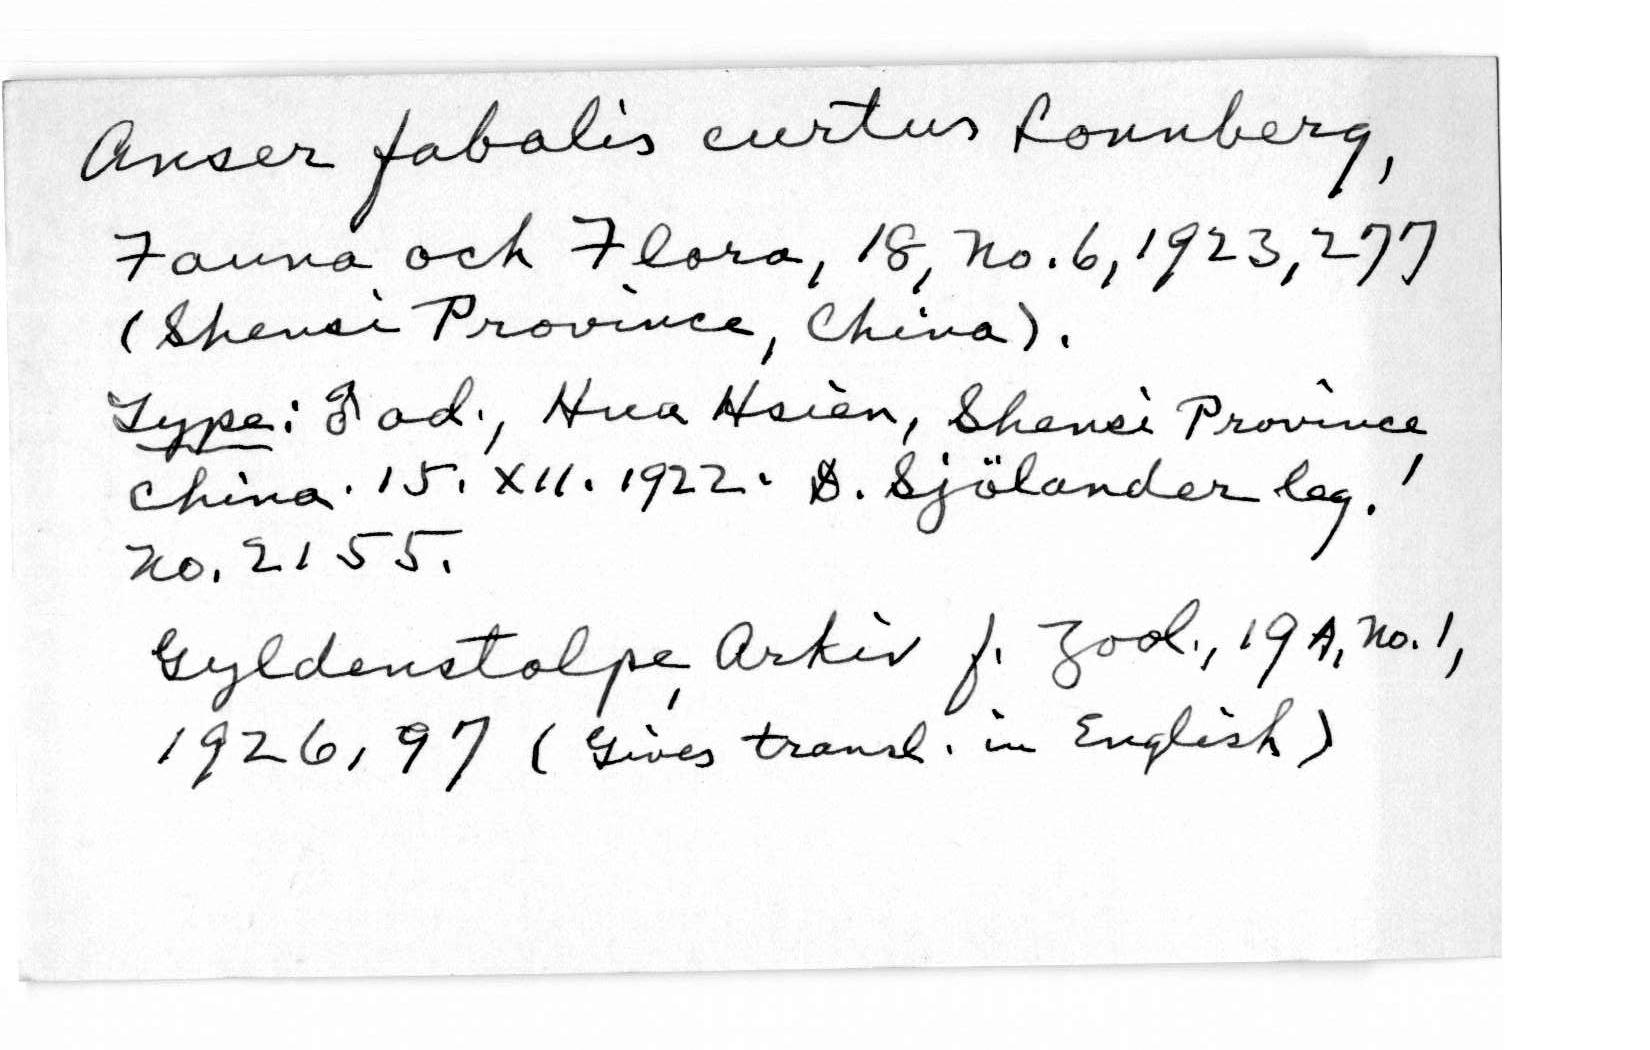 Anser fabalis curtus Lonnberg,
Fauna och Flora, 18, no. 6, 1923, 277
(Shensi Province, China).
Type: ♂ ad., Hua Hsien, Shensi Province,
China. 15. XII. 1922. D. Sjölander leg.
no. 2155.
Gyldenstolpe, Arkiv f. Zool., 19A, no. 1,
1926, 97 (Gives transl. in English)